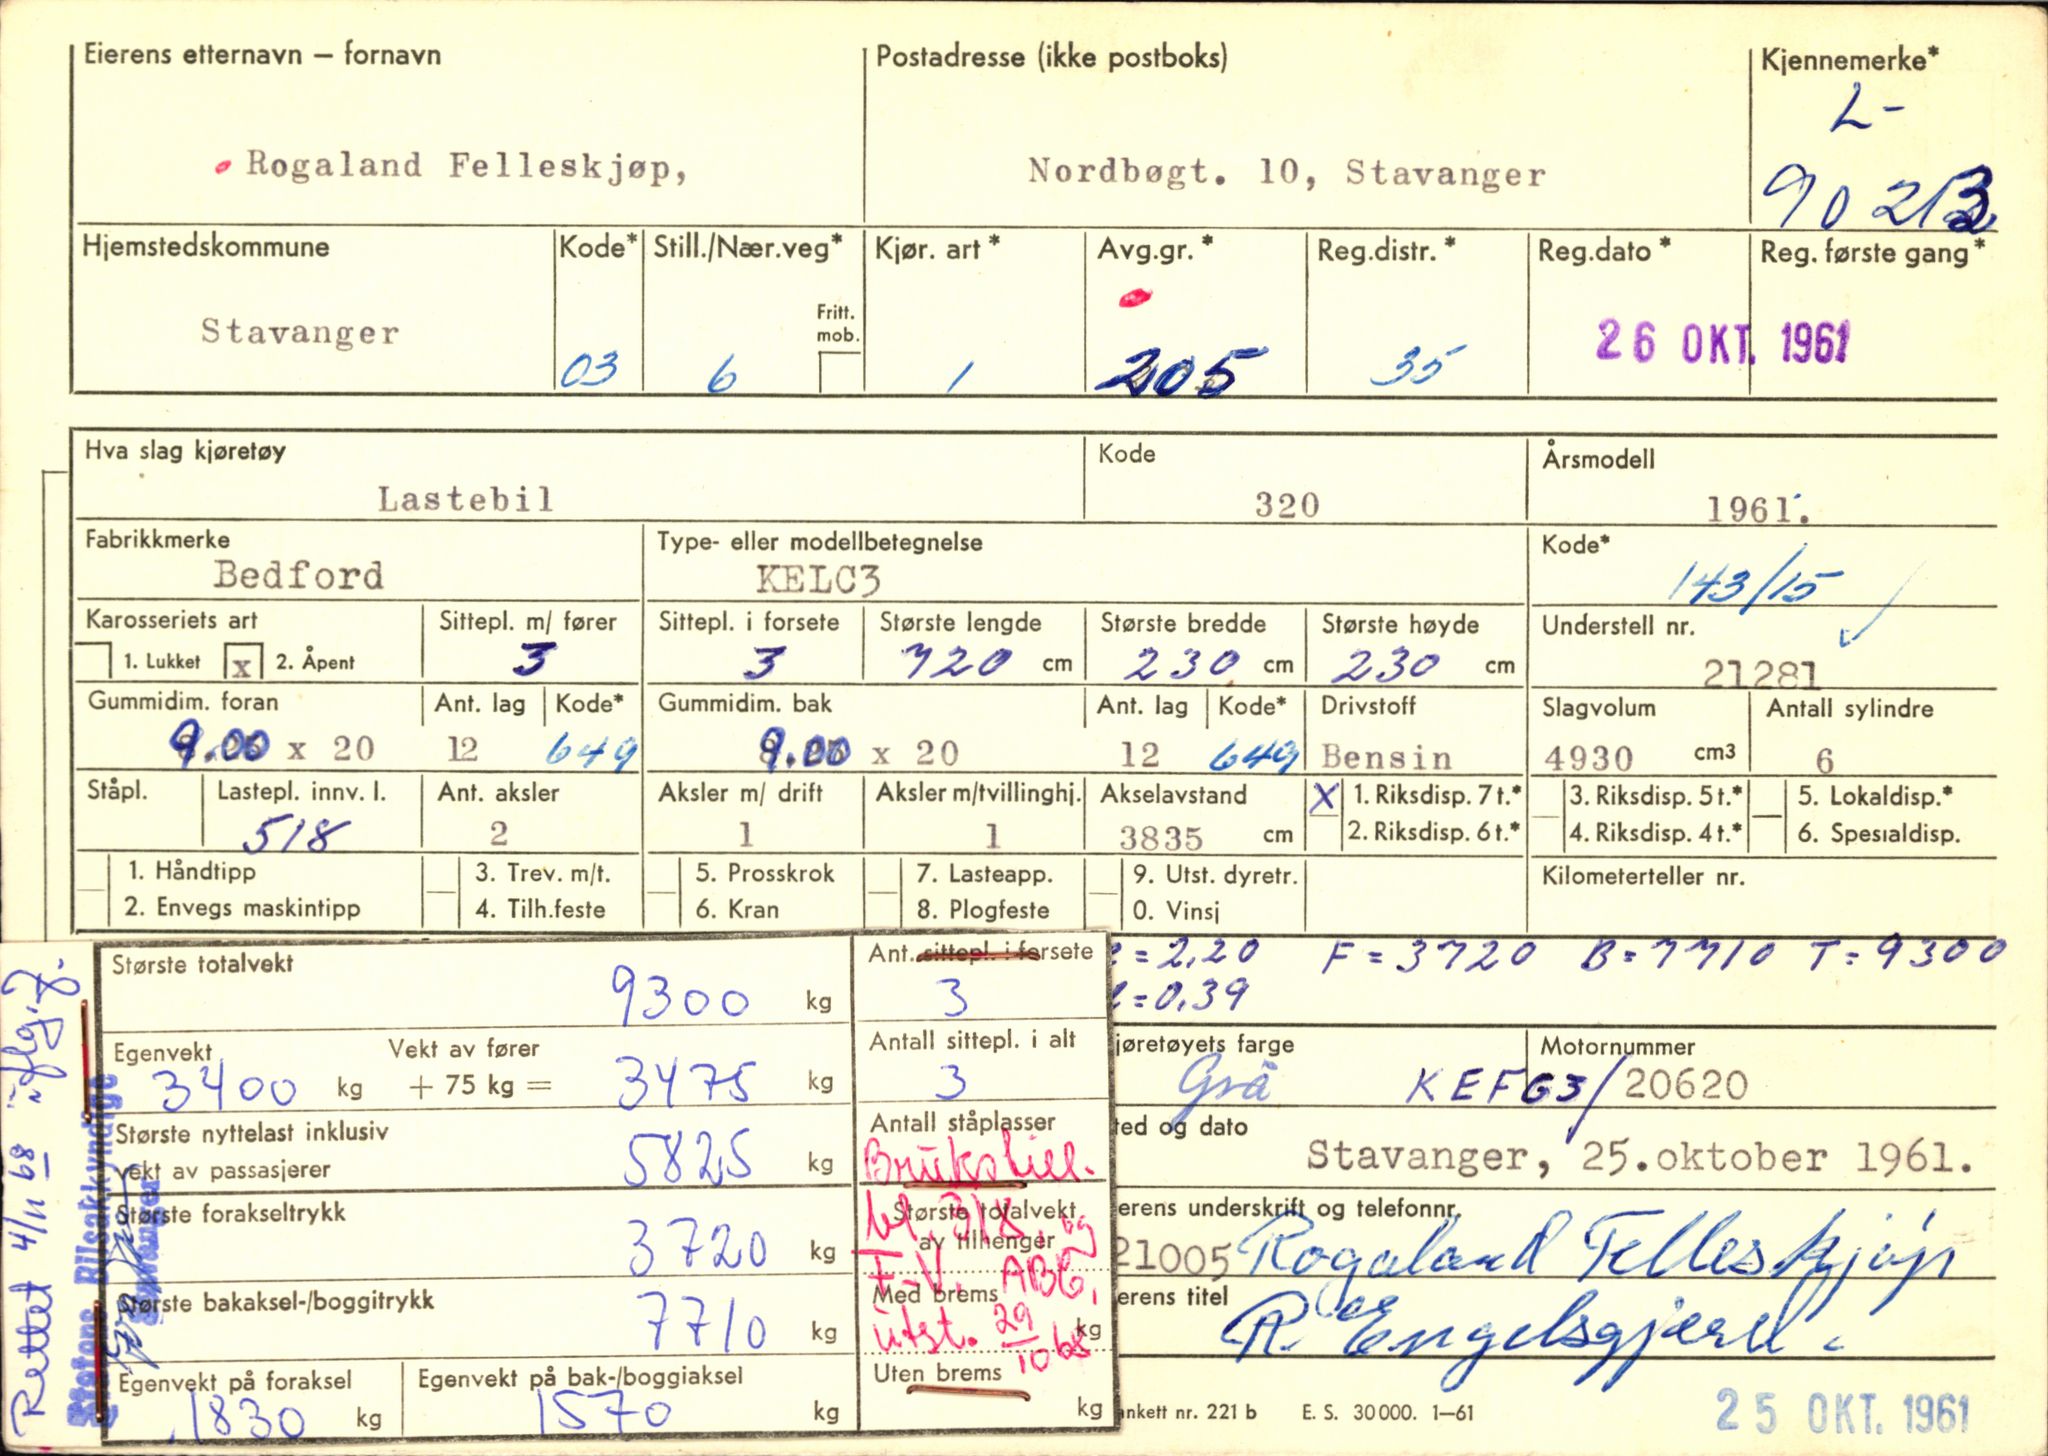 Eierens etternavn – fornavn
Postadresse (ikke postboks)
Kjennemerke*
L-
Rogaland Felleskjøp,
Nordbøgt. 10, Stavanger
Hjemstedskommune
Kode*
Still./Nær.veg*
Kjør. art *
Avg.gr. *
Reg.distr. *
Reg.dato *
Reg. første gang*
Fritt. mob.
Stavanger
03
6
1
205
35
26 OKT. 1961
Hva slag kjøretøy
Kode
Årsmodell
Lastebil
320
1961.
Fabrikkmerke
Type- eller modellbetegnelse
Kode*
Bedford
KELC3
143/15
Karosseriets art
Sittepl. m/ fører
Sittepl. i forsete
Største lengde
Største bredde
Største høyde
Understell nr.
1. Lukket x 2. Åpent
3
3
720 cm
230 cm
230 cm
21281
Gummidim. foran
Ant. lag
Kode*
Gummidim. bak
Ant. lag
Kode*
Drivstoff
Slagvolum
Antall sylindre
9.00 x 20
12
649
9.00 x 20
12
649
Bensin
4930 cm3
6
Ståpl.
Lastepl. innv. l.
Ant. aksler
Aksler m/ drift
Aksler m/tvillinghj.
Akselavstand
X 1. Riksdisp. 7 t.*
3. Riksdisp. 5 t.*
5. Lokaldisp.*
518
2
1
1
3835 cm
2. Riksdisp. 6 t.*
4. Riksdisp. 4 t.*
6. Spesialdisp.
1. Håndtipp
3. Trev. m/t.
5. Prosskrok
7. Lasteapp.
9. Utst. dyretr.
Kilometerteller nr.
2. Envegs maskintipp
4. Tilh.feste
6. Kran
8. Plogfeste
0. Vinsj
= 2,20 F = 3720 B = 7710 T = 9300
= 0,39
Største totalvekt
9300 kg
Ant. sittepl. i forsete
3
Egenvekt
3400 kg
Vekt av fører
+ 75 kg =
3475 kg
Antall sittepl. i alt
3
jøretøyets farge
Grå
Motornummer
KEFG3/20620
Største nyttelast inklusiv
vekt av passasjerer
5825 kg
Antall ståplasser
ted og dato
Stavanger, 25.oktober 1961.
Brukstill.
bl. 3/8 og
F-V. ABC,
utst. 29/10 68
Største forakseltrykk
3720 kg
Største totalvekt
av tilhenger
erens underskrift og telefonnr.
21005 Rogaland Felleskjøp
Største bakaksel-/boggitrykk
7710 kg
Med brems
kg
erens titel
R. Engelsgjerd.
Egenvekt på foraksel
1830 kg
Egenvekt på bak-/boggiaksel
1570 kg
Uten brems
kg
ankett nr. 221 b E. S. 30 000. 1–61
25 OKT. 1961
Rettet 4/11 68
Statens Bilsakkyndige
Stavanger